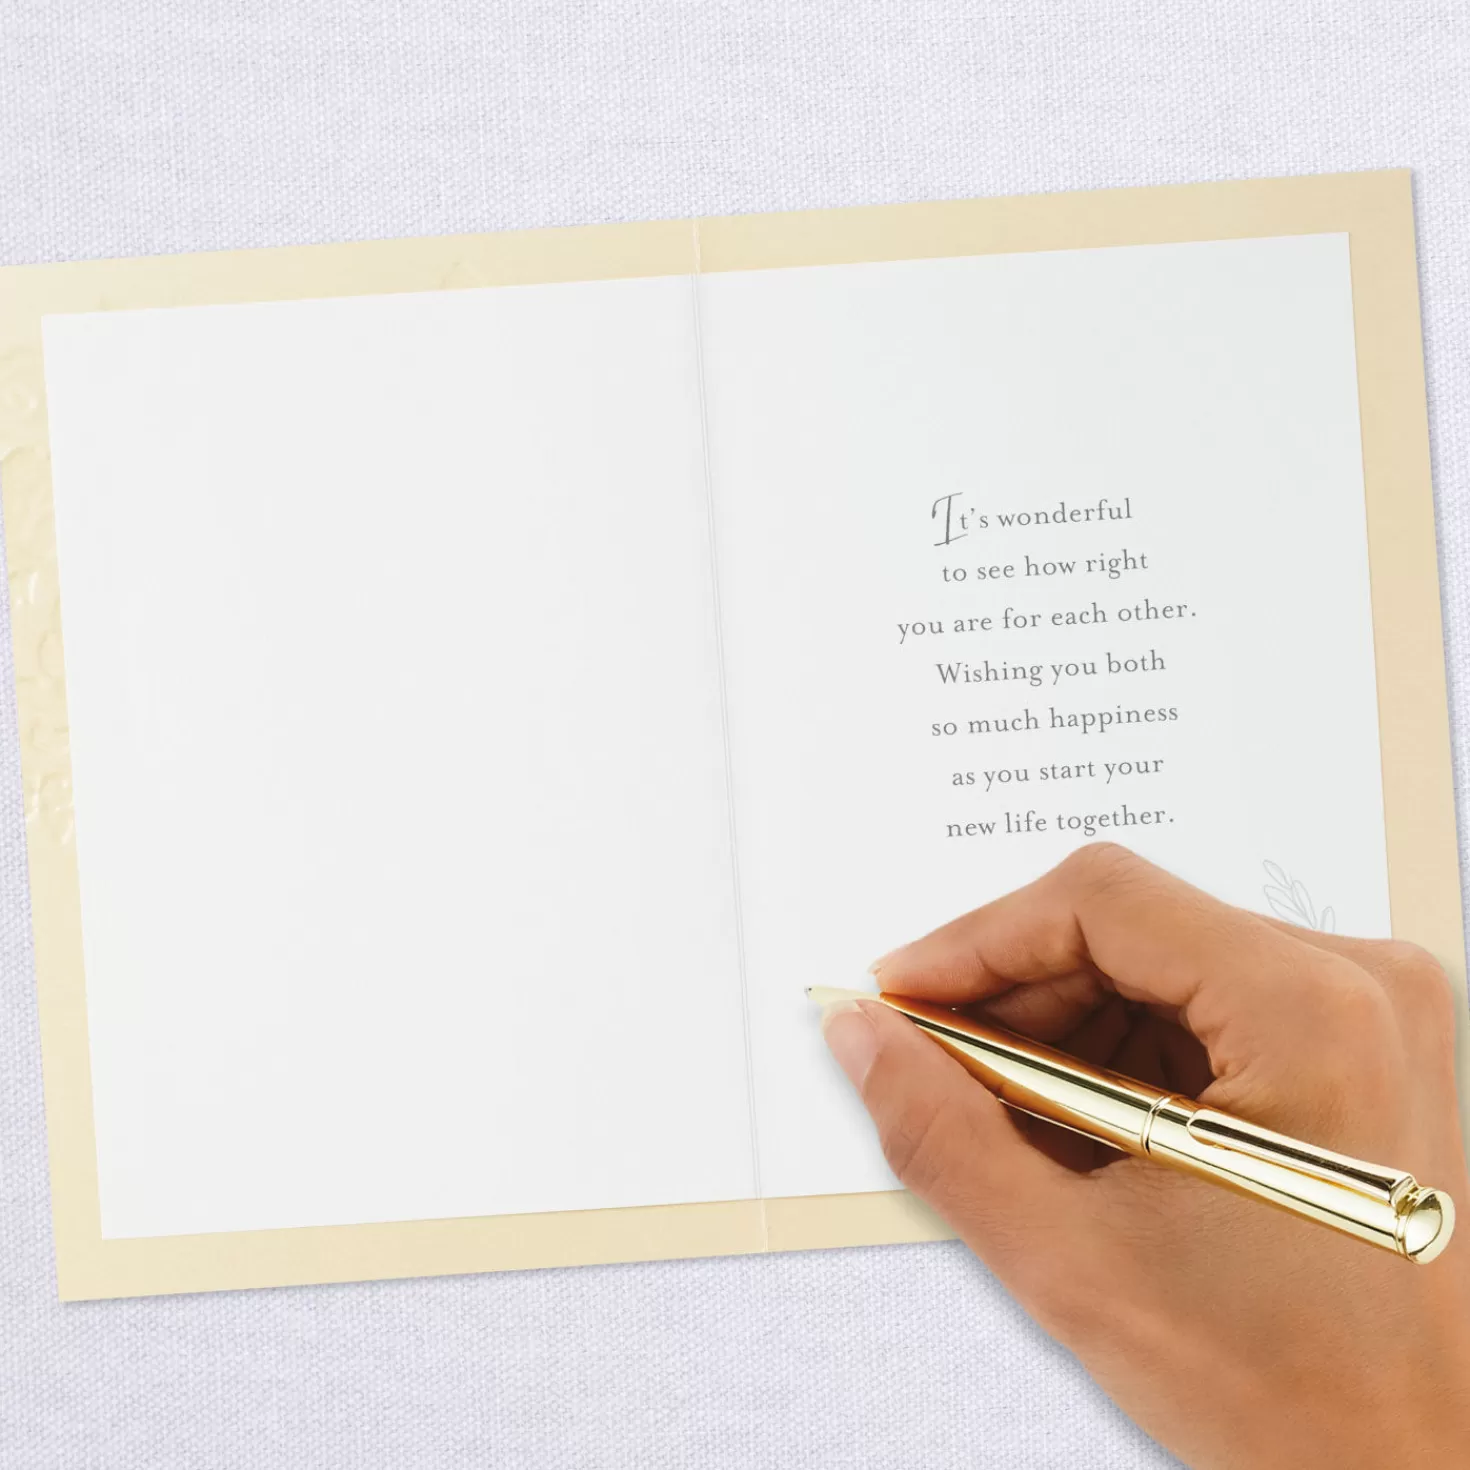 It's wonderful
to see how right
you are for each other.
Wishing you both
so much happiness
as you start your
new life together.